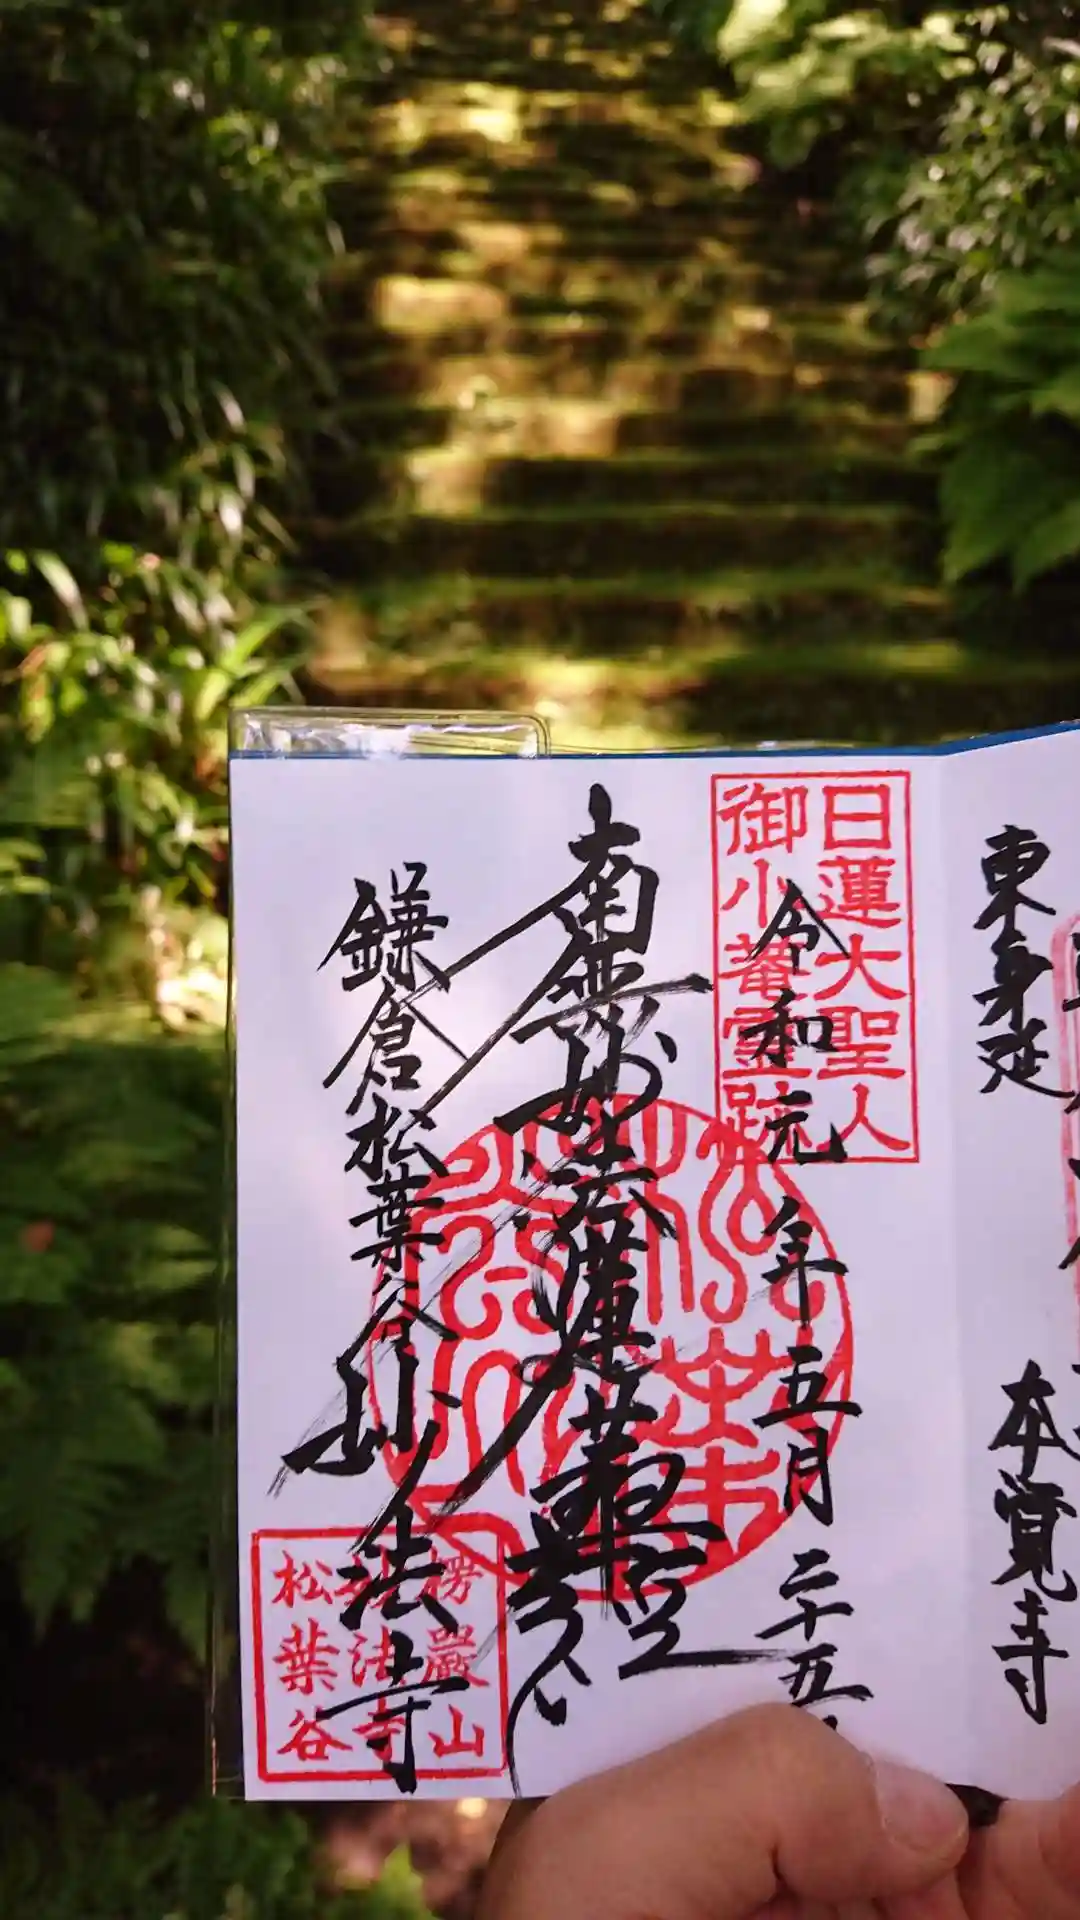 東身延
本覺寺
日蓮大聖人
御小菴霊跡
令和元年五月二十五
南無妙法蓮華経
鎌倉松葉谷妙法寺
楞嚴山
妙法寺
松葉谷